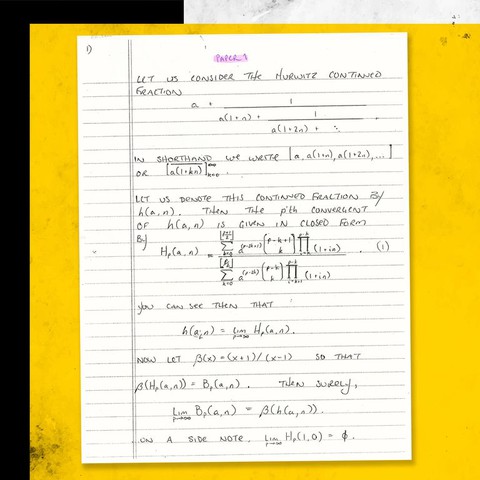 1)
PAPER 1
LET US CONSIDER THE HURWITZ CONTINUED
FRACTION
a + 1
a(1+n) + 1
a(1+2n) + ⋱ .
IN SHORTHAND WE WRITE [a, a(1+n), a(1+2n), ...]
OR [a(1+kn)]_{k=0}^{∞}.
LET US DENOTE THIS CONTINUED FRACTION BY
h(a,n). THEN THE p'th CONVERGENT
OF h(a,n) IS GIVEN IN CLOSED FORM
BY
H_p(a,n) = ∑ a^{(p-2k+1)} (p-k+1 k) ∏ (1+in) . (1)
∑_{k=0} a^{(p-2k)} (p-k k) ∏ (1+in)
YOU CAN SEE THEN THAT
h(a,n) = lim_{p→∞} H_p(a,n).
NOW LET β(x) = (x+1)/(x-1) SO THAT
β(H_p(a,n)) = B_p(a,n). THEN SURELY,
Lim_{p→∞} B_p(a,n) = β(h(a,n)).
ON A SIDE NOTE, Lim_{p→∞} H_p(1,0) = ϕ.